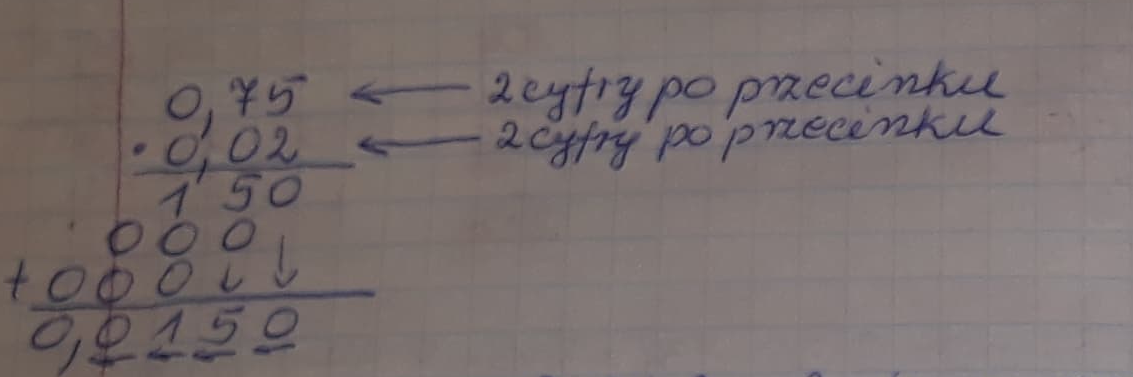 0,75 ← 2 cyfry po przecinku
· 0,02 ← 2 cyfry po przecinku
1 5 0
0 0 0 ↓
+ 0 0 0 ↓ ↓
0,0 1 5 0